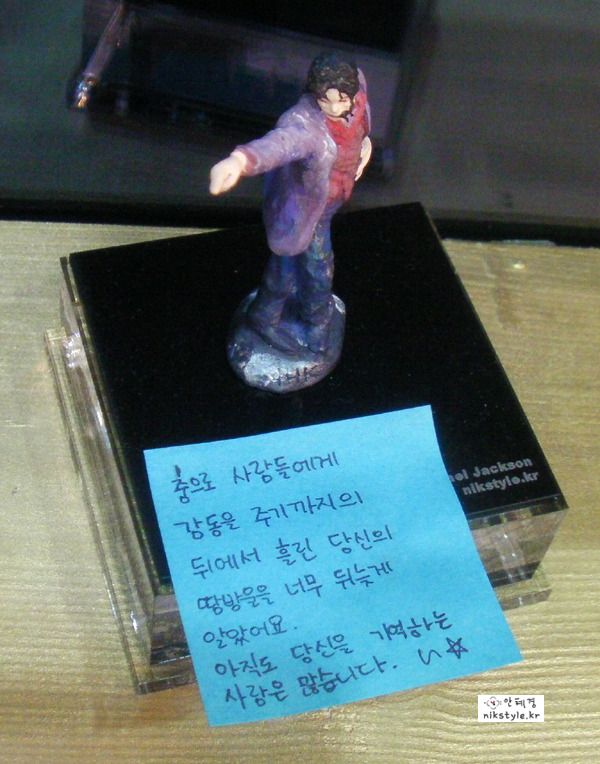 Jackson
nikstyle.kr
춤으로 사람들에게
감동을 주기까지의
뒤에서 흘린 당신의
땀방울을 너무 뒤늦게
알았어요.
아직도 당신을 기억하는
사람은 많습니다.
안혜경
nikstyle.kr